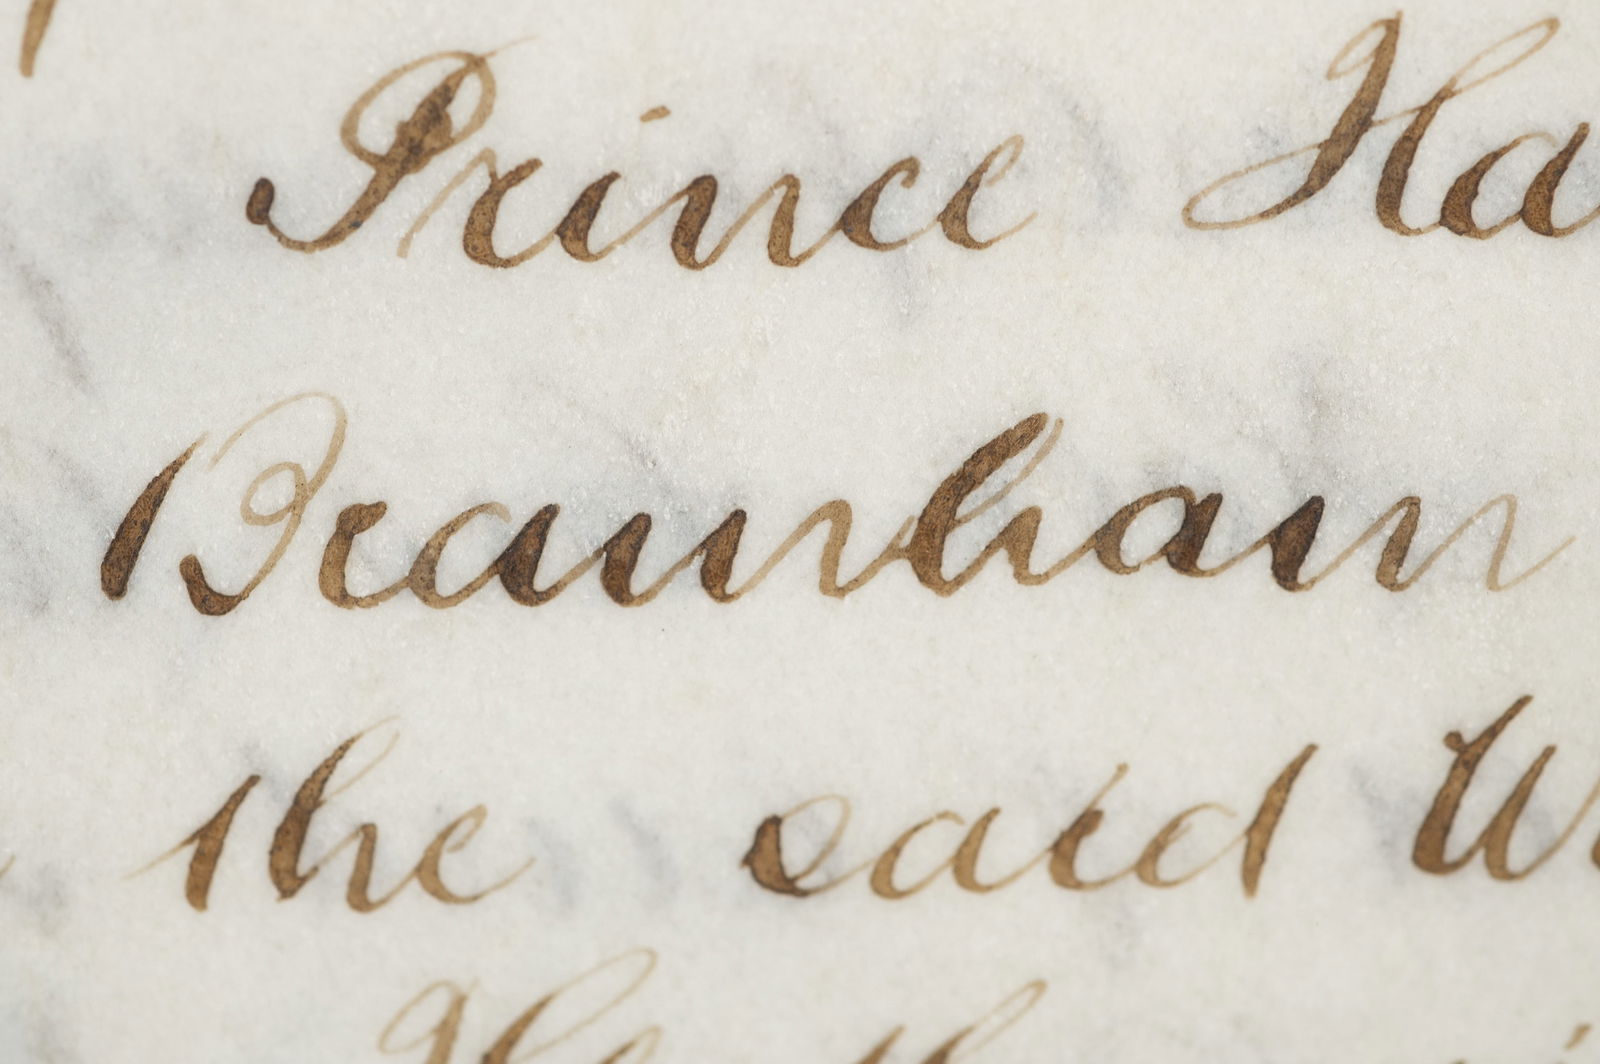 Prince Ha
Braunham
the said W